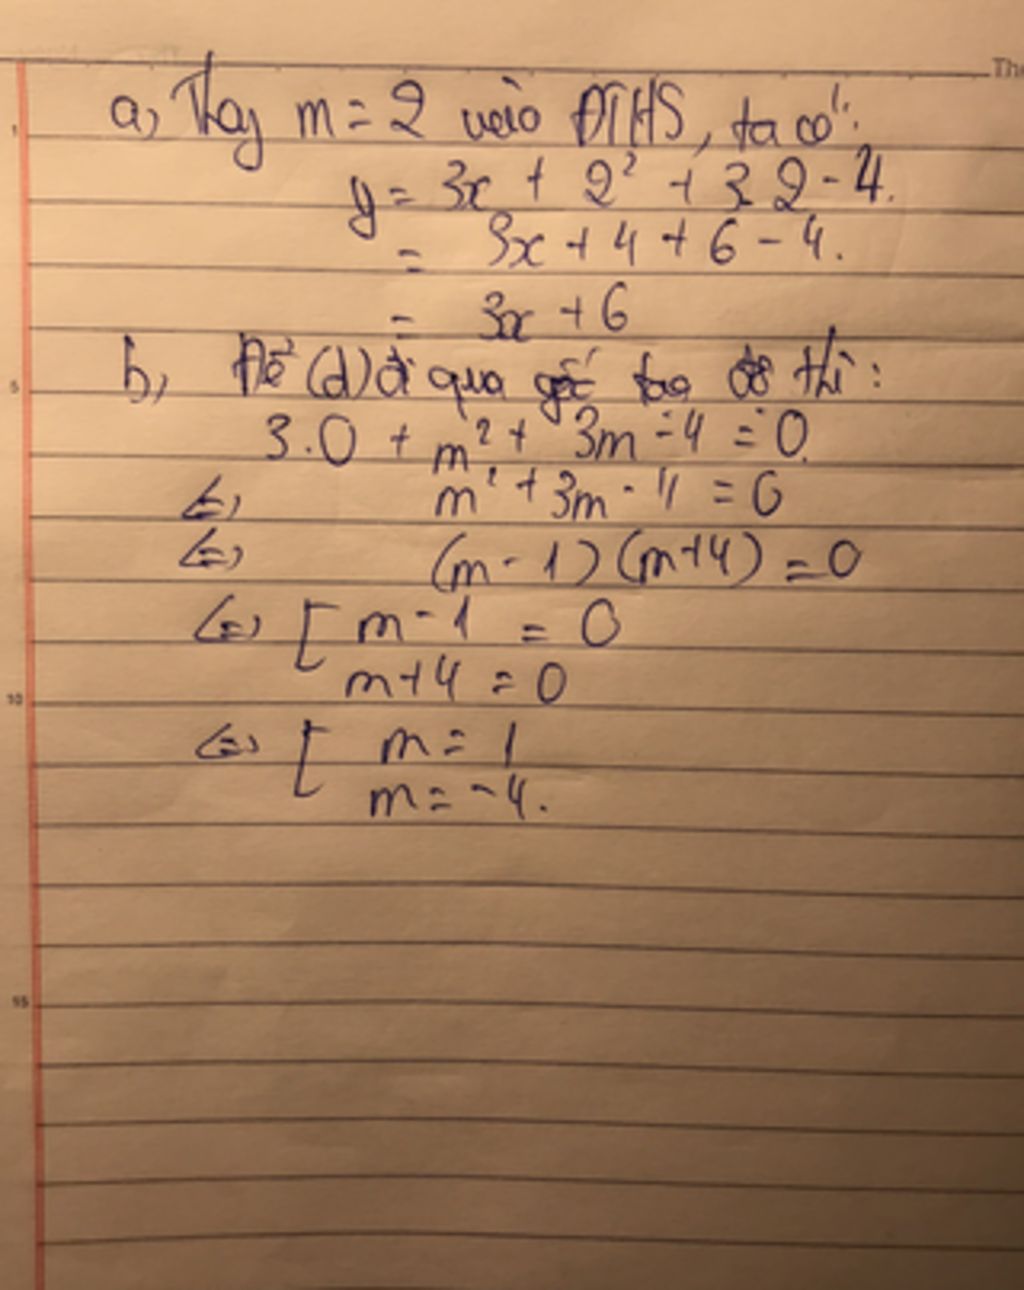 The
a, Thay m = 2 vào ĐTHS, ta có:
y = 3x + 2² + 3.2 - 4.
= 3x + 4 + 6 - 4.
= 3x + 6
b, Để (d) đi qua gốc tọa độ thì:
5
3.0 + m² + 3m - 4 = 0
<=> m² + 3m - 4 = 0
<=> (m - 1)(m+4) = 0
<=> [ m - 1 = 0
m + 4 = 0
10
<=> [ m = 1
m = -4.
15